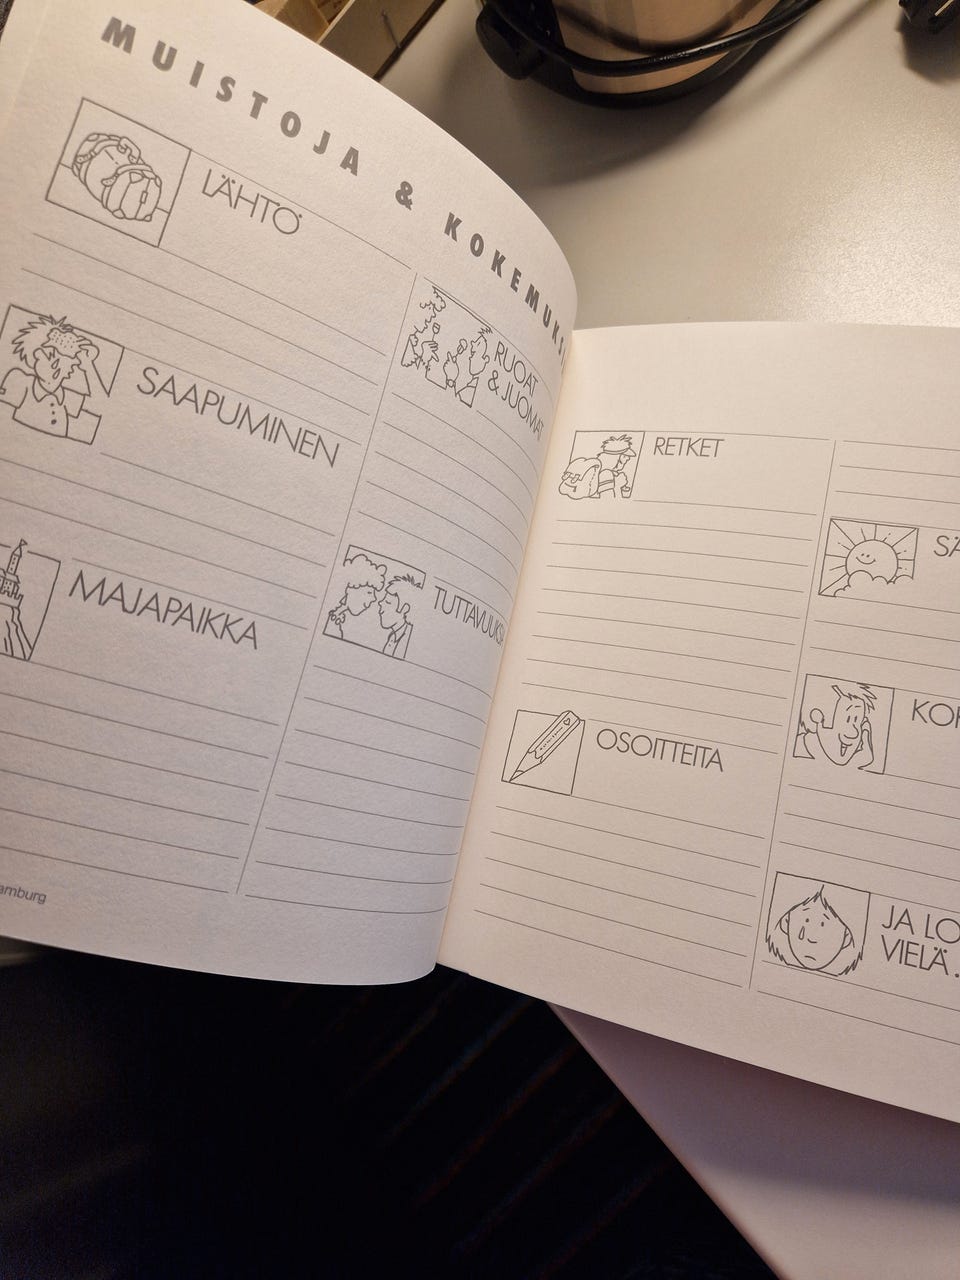 MUISTOJA & KOKEMUKSI
LÄHTÖ
SAAPUMINEN
MAJAPAIKKA
RUOAT
& JUOMAT
TUTTAVUUKS
amburg
RETKET
OSOITTEITA
SÄ
KOH
JA LO
VIELÄ..